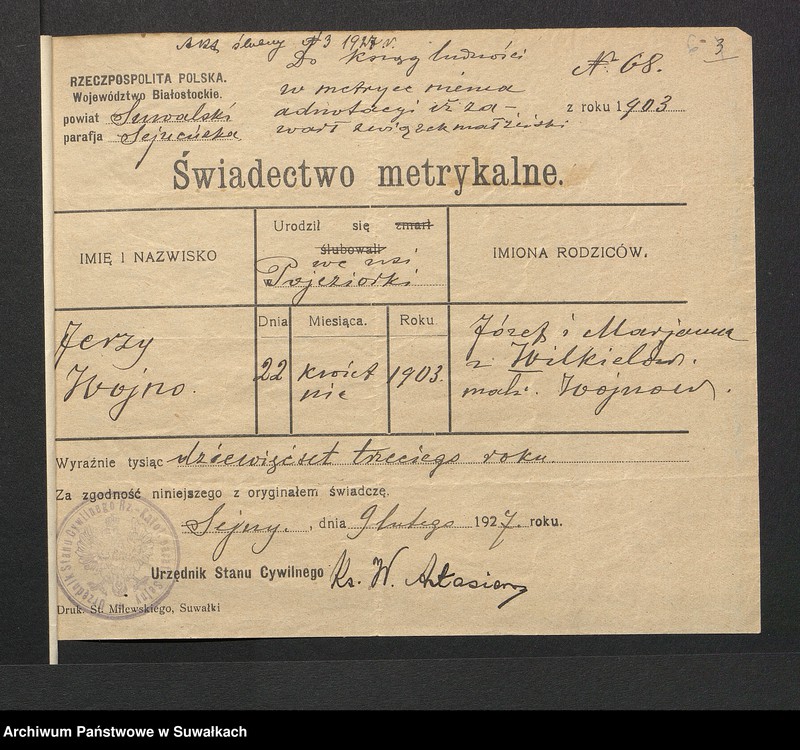 Akt ślubny № 3 1927 r.
Do ksiąg ludności
№ 68.
3
RZECZPOSPOLITA POLSKA.
Województwo Białostockie.
powiat Suwalski
parafja Sejneńska
w metryce niema
adnotacyi iż za-
warł związek małżeński
z roku 1903
Świadectwo metrykalne.
IMIĘ I NAZWISKO
Urodził się zmarł
ślubowali
we wsi
w Pojeziorki
IMIONA RODZICÓW.
Dnia
Miesiąca.
Roku
Jerzy
Wojno.
22
kwiet
nie
1903.
Józef i Marjanna
z Wilkielów.
małż. Wojnow.
Wyraźnie tysiąc dziewięćset trzeciego roku.
Za zgodność niniejszego z oryginałem świadczę.
Sejny, dnia 9 lutego 1927. roku.
Urzędnik Stanu Cywilnego Ks. W.
Urzędnik Stanu Cywilnego Rz.-Katol.
Druk. St. Milewskiego, Suwałki
Archiwum Państwowe w Suwałkach